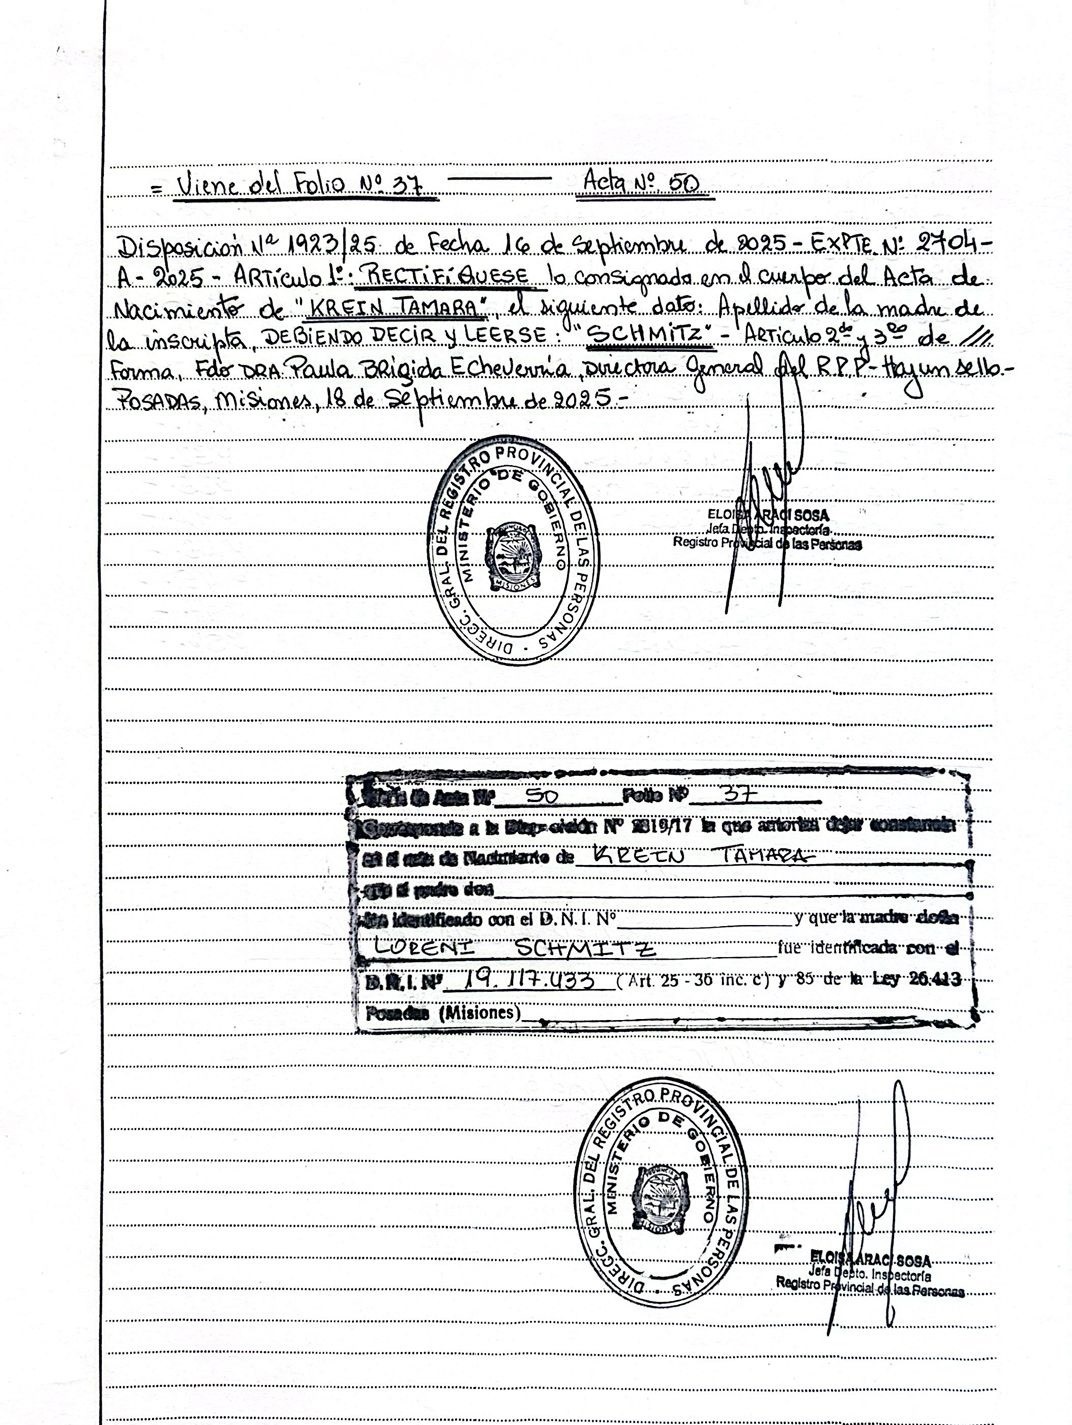 = Viene del Folio Nº 37 ——— Acta Nº 50
Disposición Nº 1923/25 de Fecha 16 de Septiembre de 2025 - EXPTE. Nº 2704-
A - 2025 - ARTículo 1º: RECTIFíQUESE lo consignado en el cuerpo del Acta de
Nacimiento de "KREIN TAMARA", el siguiente dato: Apellido de la madre de
la inscripta, DEBIENDO DECIR y LEERSE: "SCHMITZ" - ARTículo 2do y 3ro de ///
Forma, Fdo DRA. Paula BRígida Echeverría, Directora General del R.P.P - Hay un sello.-
POSADAS, Misiones, 18 de Septiembre de 2025.-
DIRECC. GRAL. DEL REGISTRO PROVINCIAL DE LAS PERSONAS
MINISTERIO DE GOBIERNO
MISIONES
ELOISA ARACI SOSA
Jefa Depto. Inspectoría
Registro Provincial de las Personas
de Acta Nº 50 Folio Nº 37
Corresponde a la Disposición Nº 2819/17 la que autoriza dejar constancia
en el acta de Nacimiento de KREIN TAMARA
Que el padre don
identificado con el D.N.I. Nº y que la madre doña
LORENI SCHMITZ fue identificada con el
D.N.I. Nº 19.117.433 (Art. 25 - 36 inc. c) y 85 de la Ley 26.413
Posadas (Misiones)
DIRECC. GRAL. DEL REGISTRO PROVINCIAL DE LAS PERSONAS
MINISTERIO DE GOBIERNO
MISIONES
ELOISA ARACI SOSA
Jefa Depto. Inspectoría
Registro Provincial de las Personas